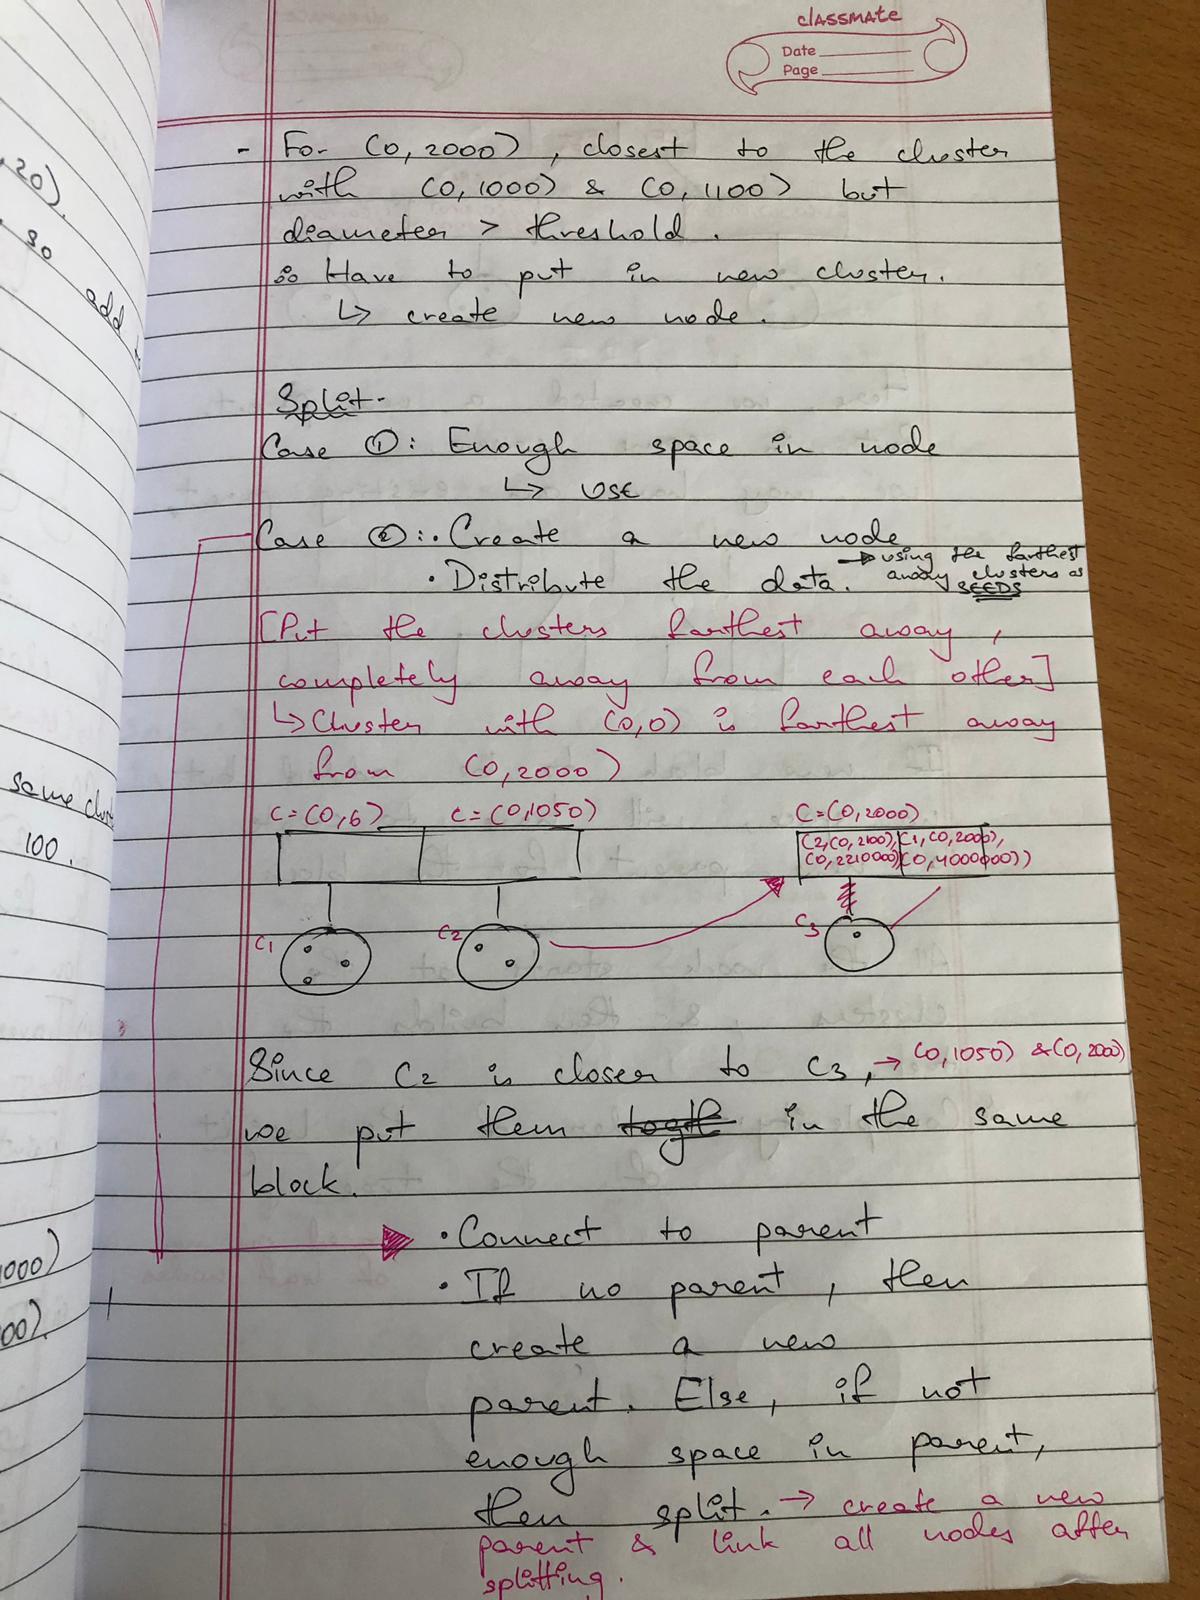 classmate
Date
Page
- For (0,2000), closest to the cluster
with (0,1000) & (0,1100) but
diameter > threshold.
∴ Have to put in new cluster.
↳ create new node.
Split-
Case ①: Enough space in node
↳ USE
Case ②: • Create a new node
• Distribute the data. → using the farthest
away clusters as
SEEDS
[Put the clusters farthest away,
completely away from each other]
↳ Cluster with (0,0) is farthest away
from (0,2000)
C=(0,6) C=(0,1050) C=(0,2000)
(2,(0,2100), (1,(0,2000),
(0,2210000) (0,4000000))
C1 C2 C3
Since C2 is closer to C3, → (0,1050) & (0,2000)
we put them in the same
block.
• Connect to parent
• If no parent, then
create a new
parent. Else, if not
enough space in parent,
then split. → create a new
parent & link all nodes after
splitting.
20).
30
add
same
100.
000)
00).